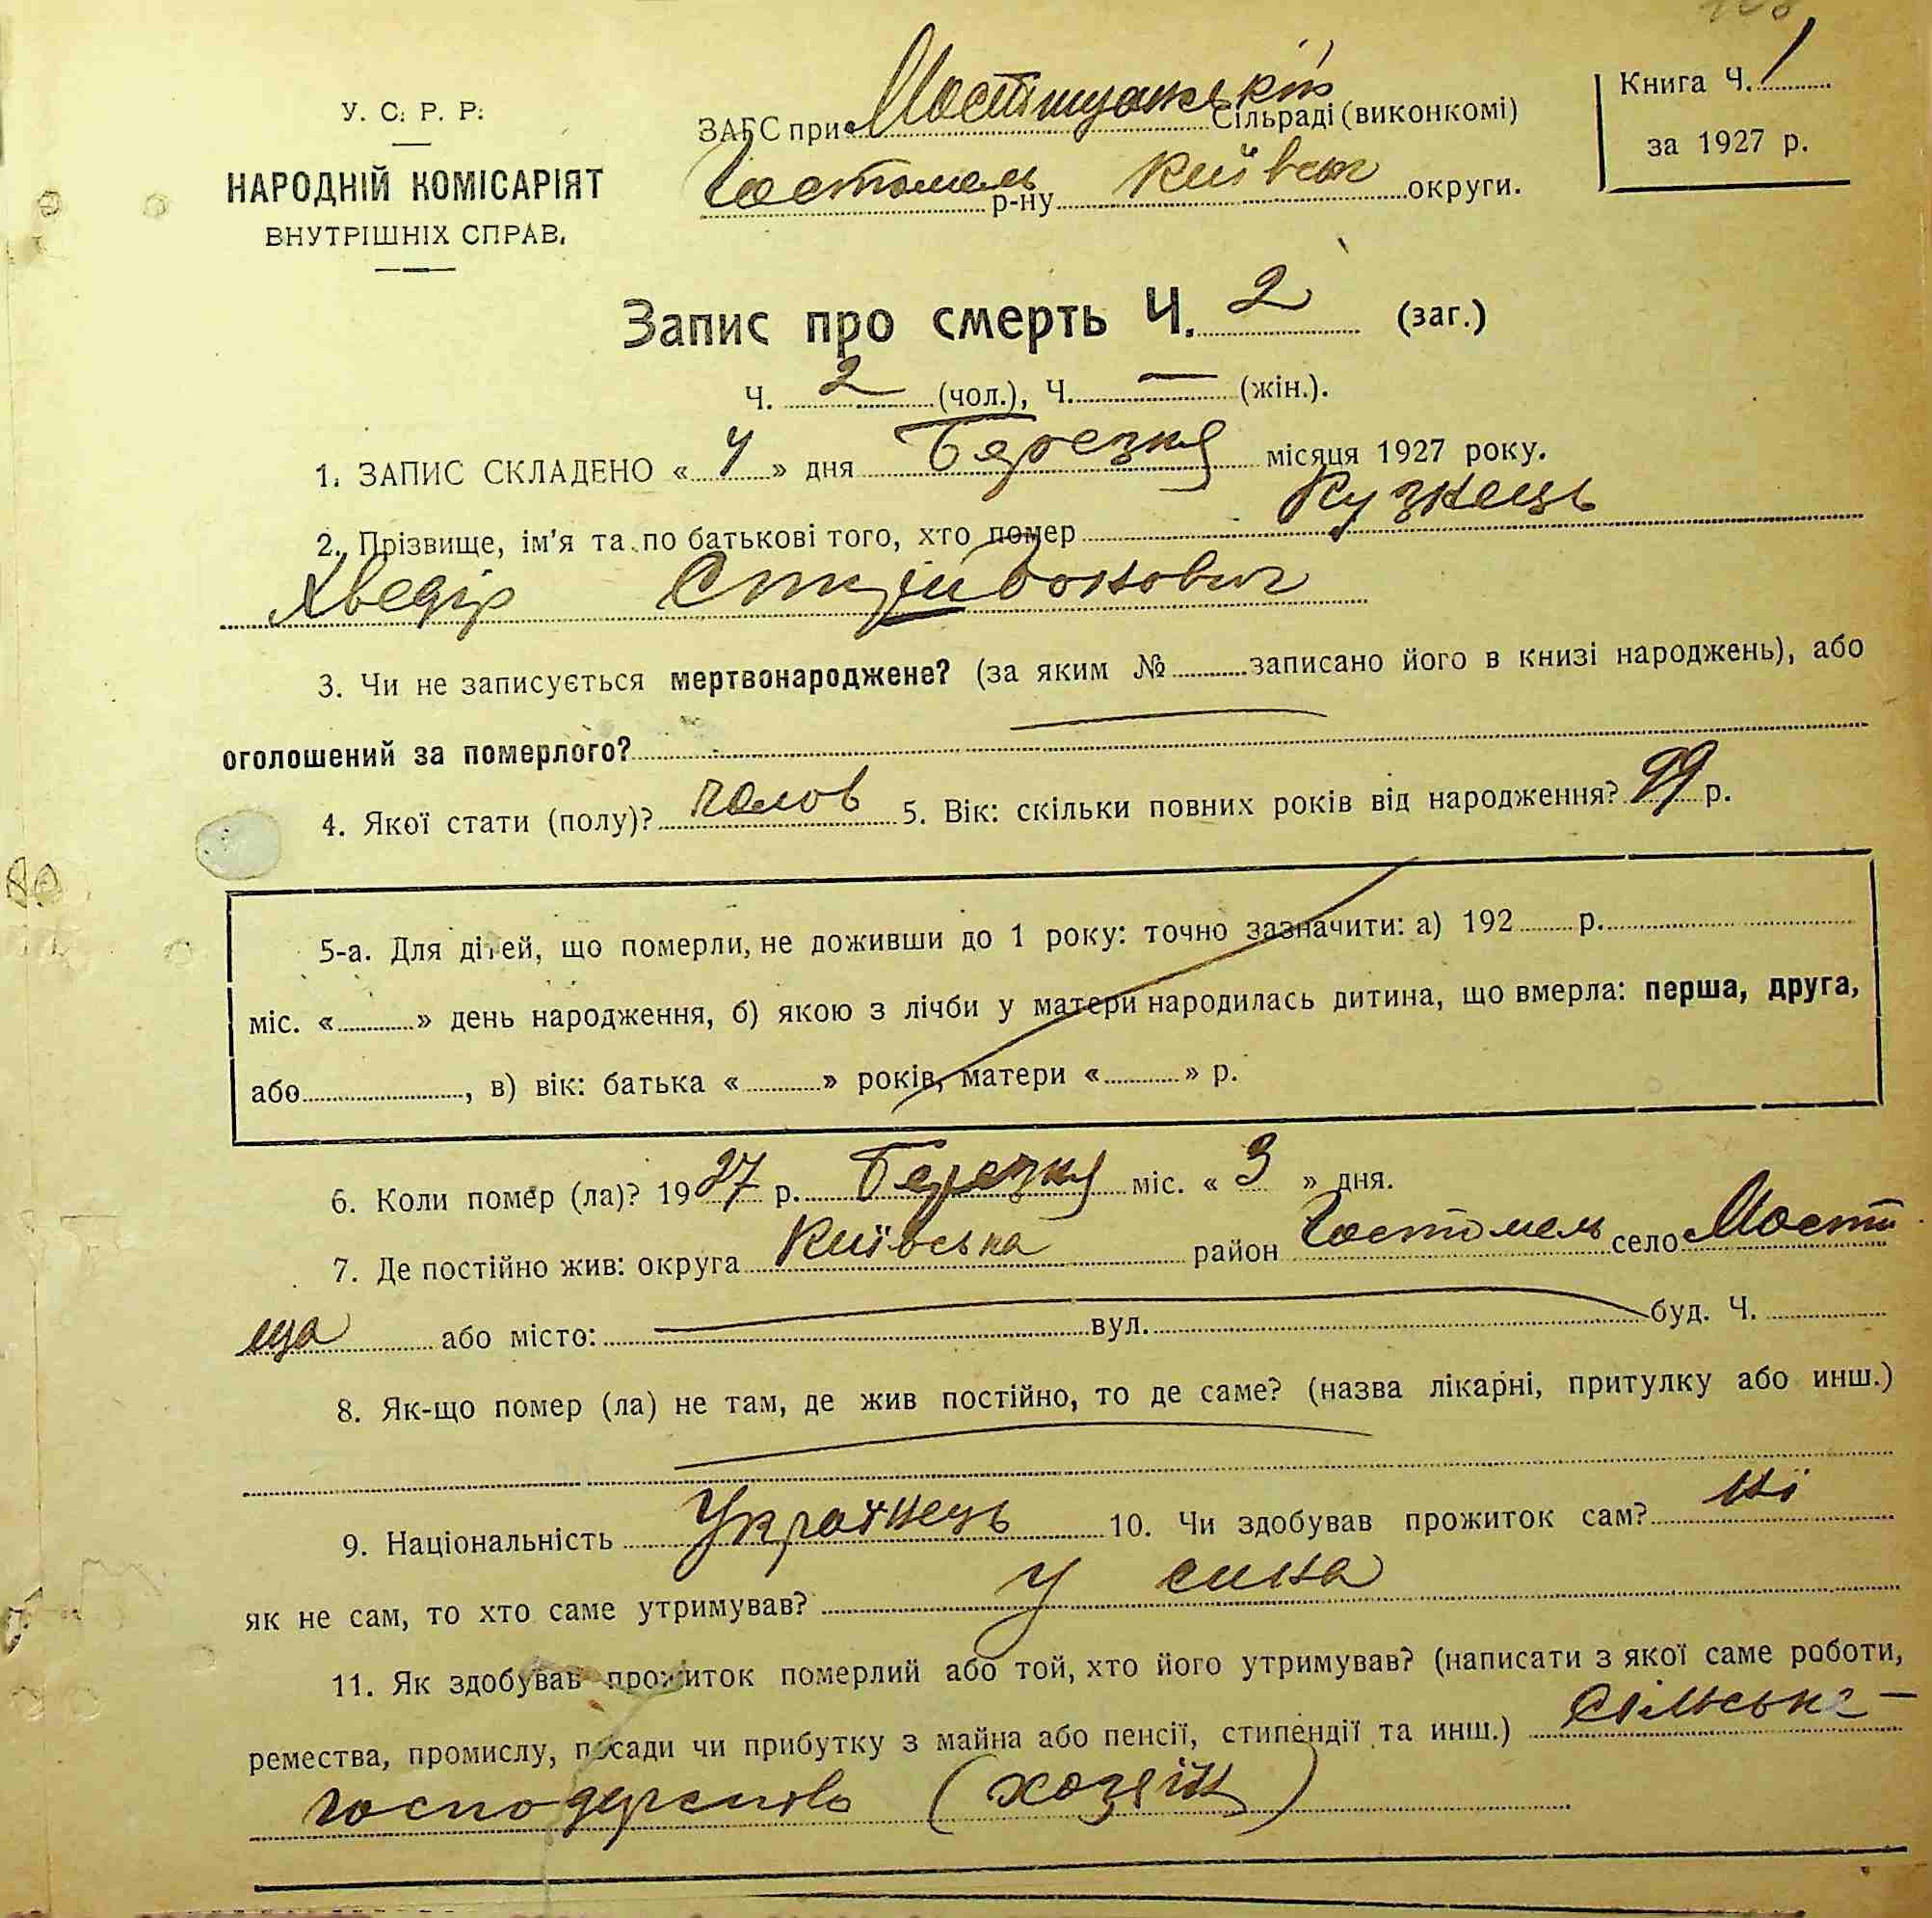 У. С. Р. Р.
НАРОДНІЙ КОМІСАРІЯТ
ВНУТРІШНІХ СПРАВ.
ЗАГС при Мостищанській Сільраді (виконкомі)
Гостомель р-ну Київськ округи.
Книга Ч. 1
за 1927 р.
Запис про смерть Ч. 2 (заг.)
Ч. 2 (чол.), Ч. — (жін.).
1. ЗАПИС СКЛАДЕНО « 4 » дня Березня місяця 1927 року.
2. Прізвище, ім'я та по батькові того, хто помер Кузнець
Хведір
3. Чи не записується мертвонароджене? (за яким № записано його в книзі народжень), або
оголошений за померлого?
4. Якої стати (полу)? чолов 5. Вік: скільки повних років від народження? 99 р.
5-а. Для дітей, що померли, не доживши до 1 року: точно зазначити: а) 192 р.
міс. « » день народження, б) якою з лічби у матери народилась дитина, що вмерла: перша, друга,
або , в) вік: батька « » років, матери « » р.
6. Коли помер (ла)? 1927 р. Березня міс. « 3 » дня.
7. Де постійно жив: округа Київська район Гостомель село Мости
ща або місто: вул. буд. Ч.
8. Як-що помер (ла) не там, де жив постійно, то де саме? (назва лікарні, притулку або инш.)
9. Національність Українець 10. Чи здобував прожиток сам? ні
як не сам, то хто саме утримував? У сина
11. Як здобував прожиток померлий або той, хто його утримував? (написати з якої саме роботи,
ремества, промислу, посади чи прибутку з майна або пенсії, стипендії та инш.) Сільське —
господарство (хозяїн)